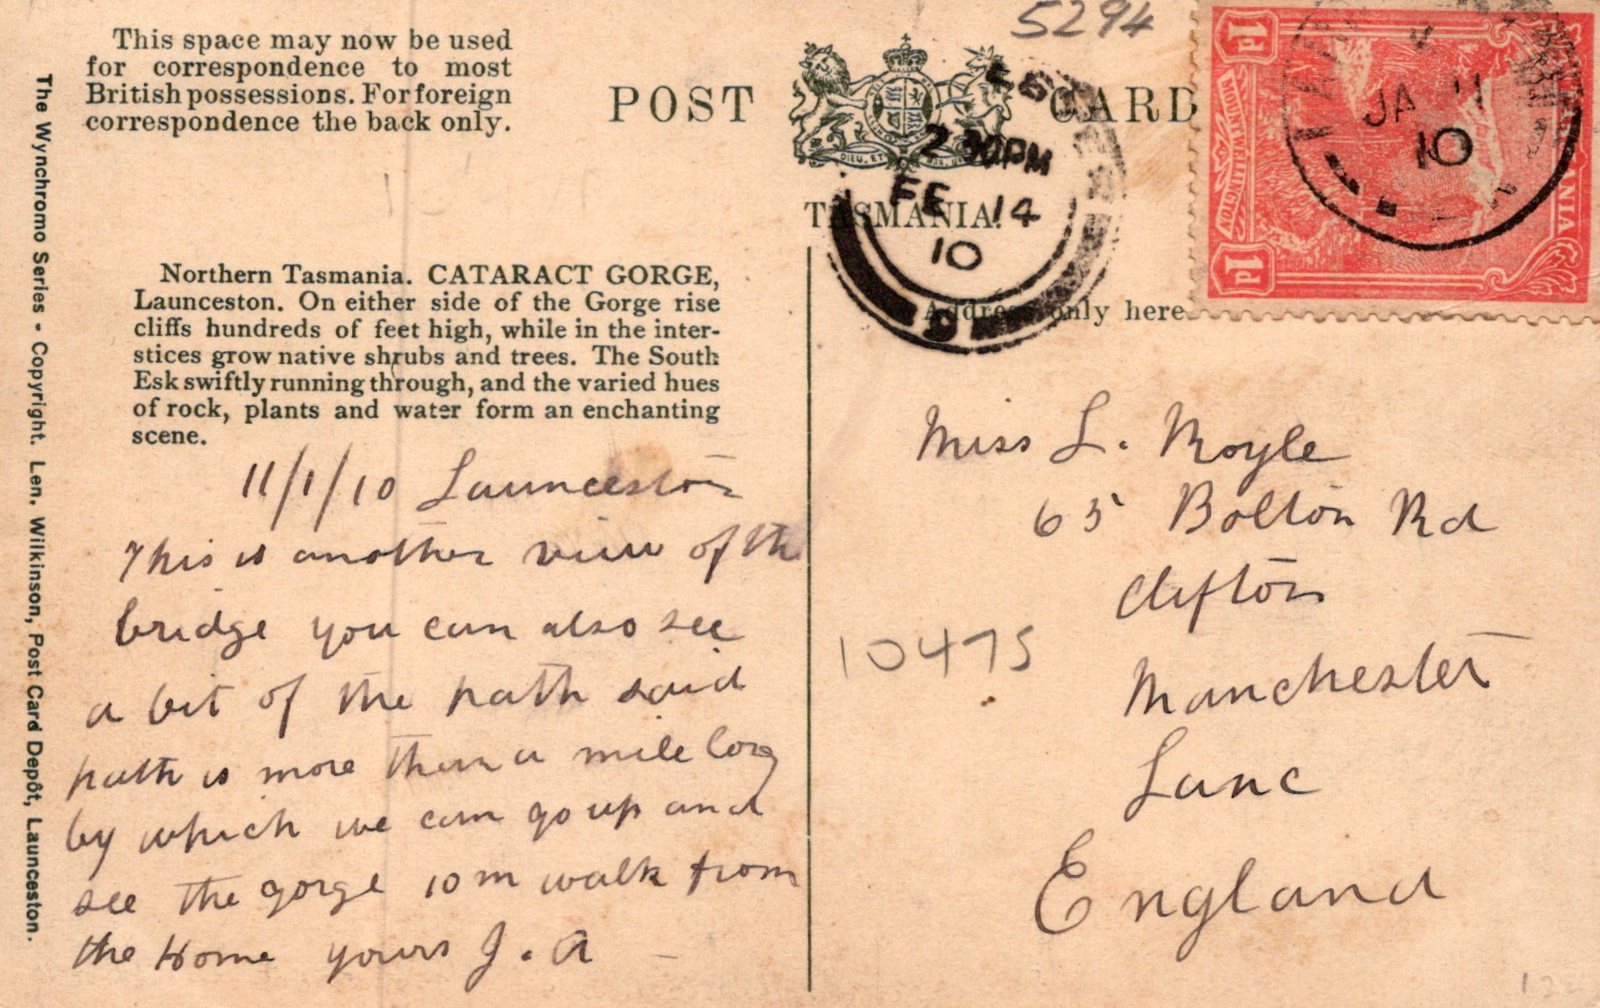 This space may now be used
for correspondence to most
British possessions. For foreign
correspondence the back only.
5294
POST CARD
DIEU ET
TASMANIA.
Address only here
1d
1d
MOUNT WELLINGTON
JA 11
10
2 30 PM
FE 14
10
Northern Tasmania. CATARACT GORGE,
Launceston. On either side of the Gorge rise
cliffs hundreds of feet high, while in the inter-
stices grow native shrubs and trees. The South
Esk swiftly running through, and the varied hues
of rock, plants and water form an enchanting
scene.
11/1/10 Launceston
This is another view of the
bridge you can also see
a bit of the path said
path is more than a mile long
by which we can go up and
see the gorge 10 m walk from
the Home yours J. A
Miss L. Royle
65 Bolton Rd
Clifton
Manchester
Lanc
England
10475
The Wynchromo Series - Copyright. Len. Wilkinson, Post Card Depôt, Launceston.